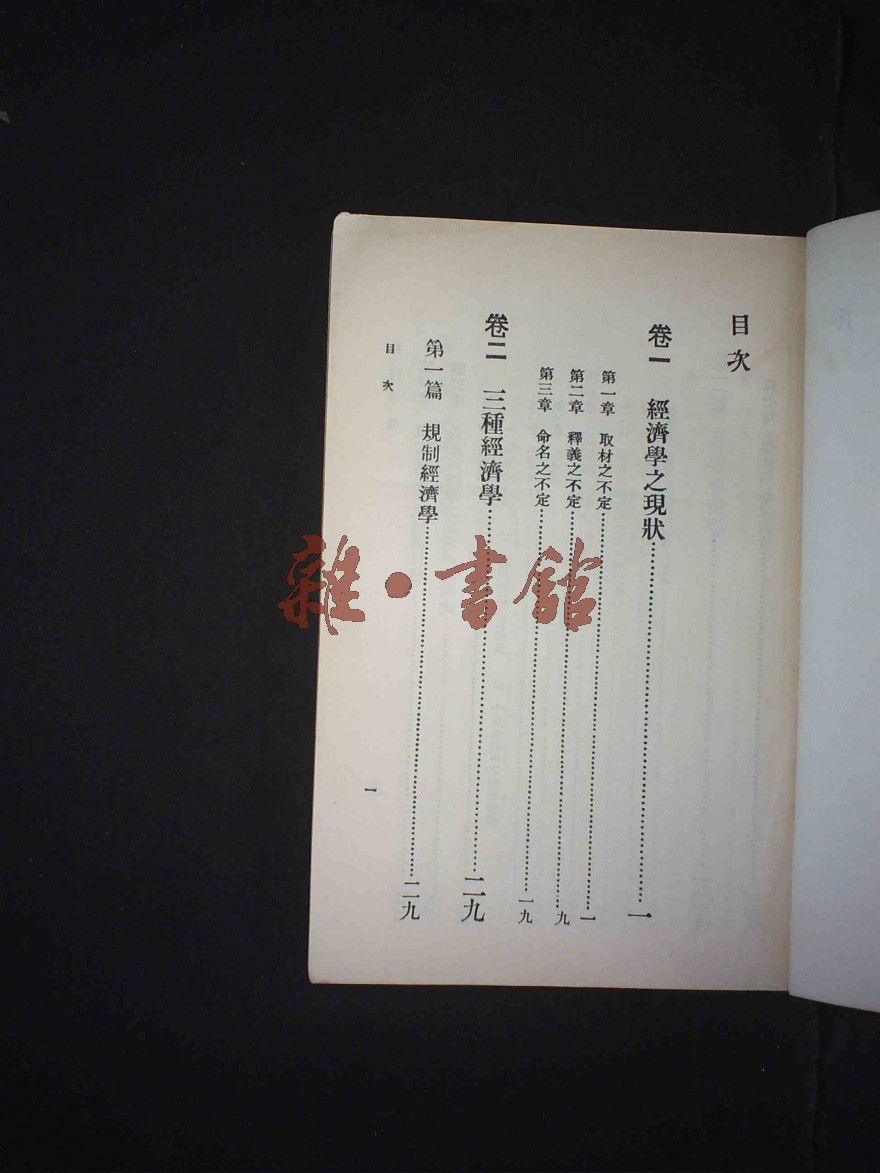 目次
卷一　經濟學之現狀……一
第一章　取材之不定……一
第二章　釋義之不定……九
第三章　命名之不定……一九
卷二　三種經濟學……二九
第一篇　規制經濟學……二九
目次
一
雜·書館